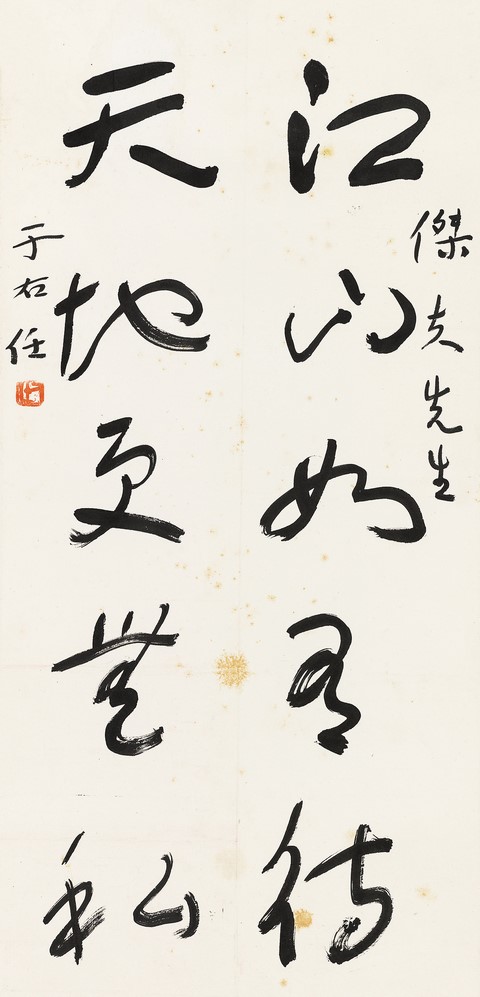 傑夫先生
江山如有待
天地更無私
于右任